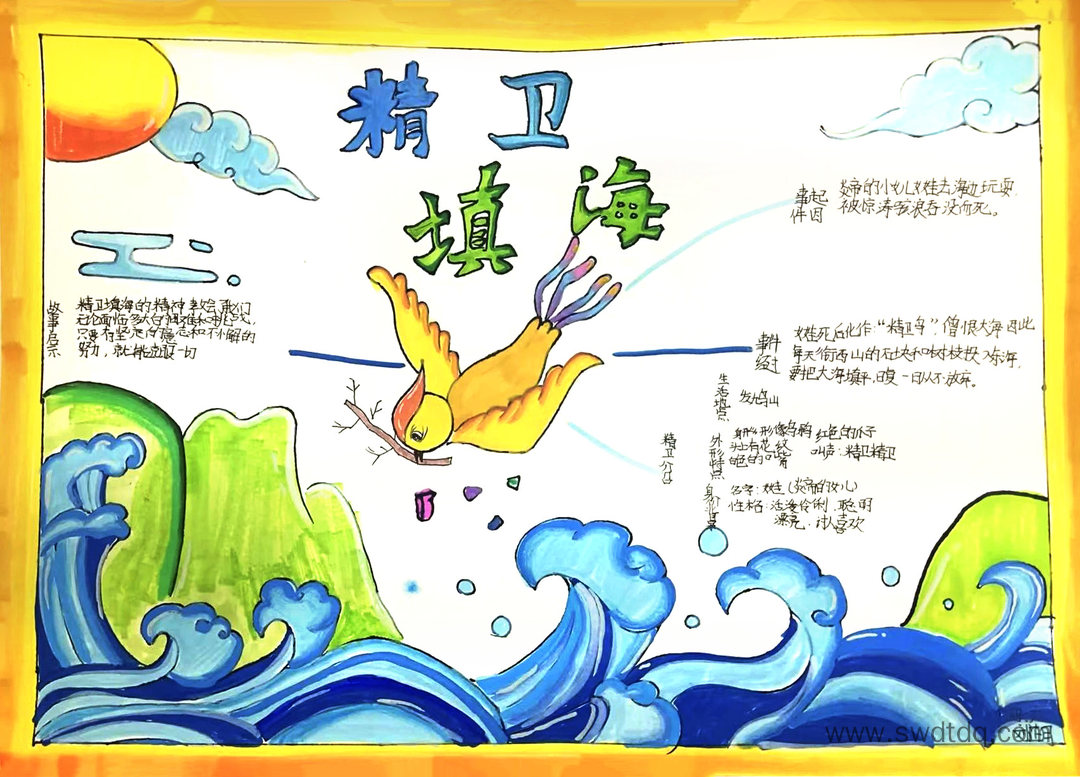 精卫
填海
事件
起因
炎帝的小女儿女娃去海边玩耍,
被惊涛骇浪吞没而死。
故事启示
精卫填海的精神教会我们
无论面临多大的困难和挑战,
只要有坚定的信念和不懈的
努力,就能克服一切
事件
经过
女娃死后化作:“精卫鸟”,憎恨大海因此
每天衔西山的石块和树枝投入东海,
要把大海填平,日复一日从不放弃。
精卫介绍
生活地点
发鸠山
外形特点
身形:形像乌鸦 红色的爪子
头上有花纹 叫声:精卫精卫
白色的嘴
身份背景
名字:女娃(炎帝的女儿)
性格:活泼伶俐,聪明
漂亮,讨人喜欢
www.swdtdq.com